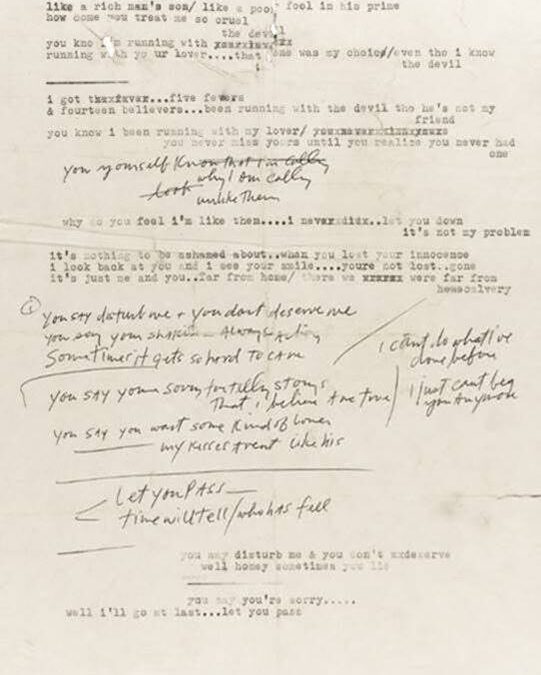 like a rich man's son/ like a poor fool in his prime
how come you treat me so cruel
the devil
you kno i'm running with
running with yo ur lover....that one was my choice/even tho i know
the devil
i got ...five fevers
& fourteen believers...been running with the devil tho he's not my
friend
you know i been running with my lover/
you never miss yours until you realize you never had
one
you yourself know that I'm calling
look why I am calling
unlike Them
why do you feel i'm like them....i never ..let you down
it's not my problem
it's nothing to be ashamed about..when you lost your innocence
i look back at you and i see your smile....youre not lost..gone
it's just me and you..far from home/ there we were far from
① you say disturb me + you dont deserve me
you say your shakin - Always Acting
Sometimes it gets so hard to care
i can't do what i've
done before
you say your sorry for telling storys
That i believe are true
i just can't beg
you Anymore
you say you want some kind of
my kisses arent like his
Let you PASS —
time will tell/who has fell
you say disturb me & you don't deserve
well honey sometimes you lie
you say you're sorry.....
well i'll go at last...let you pass